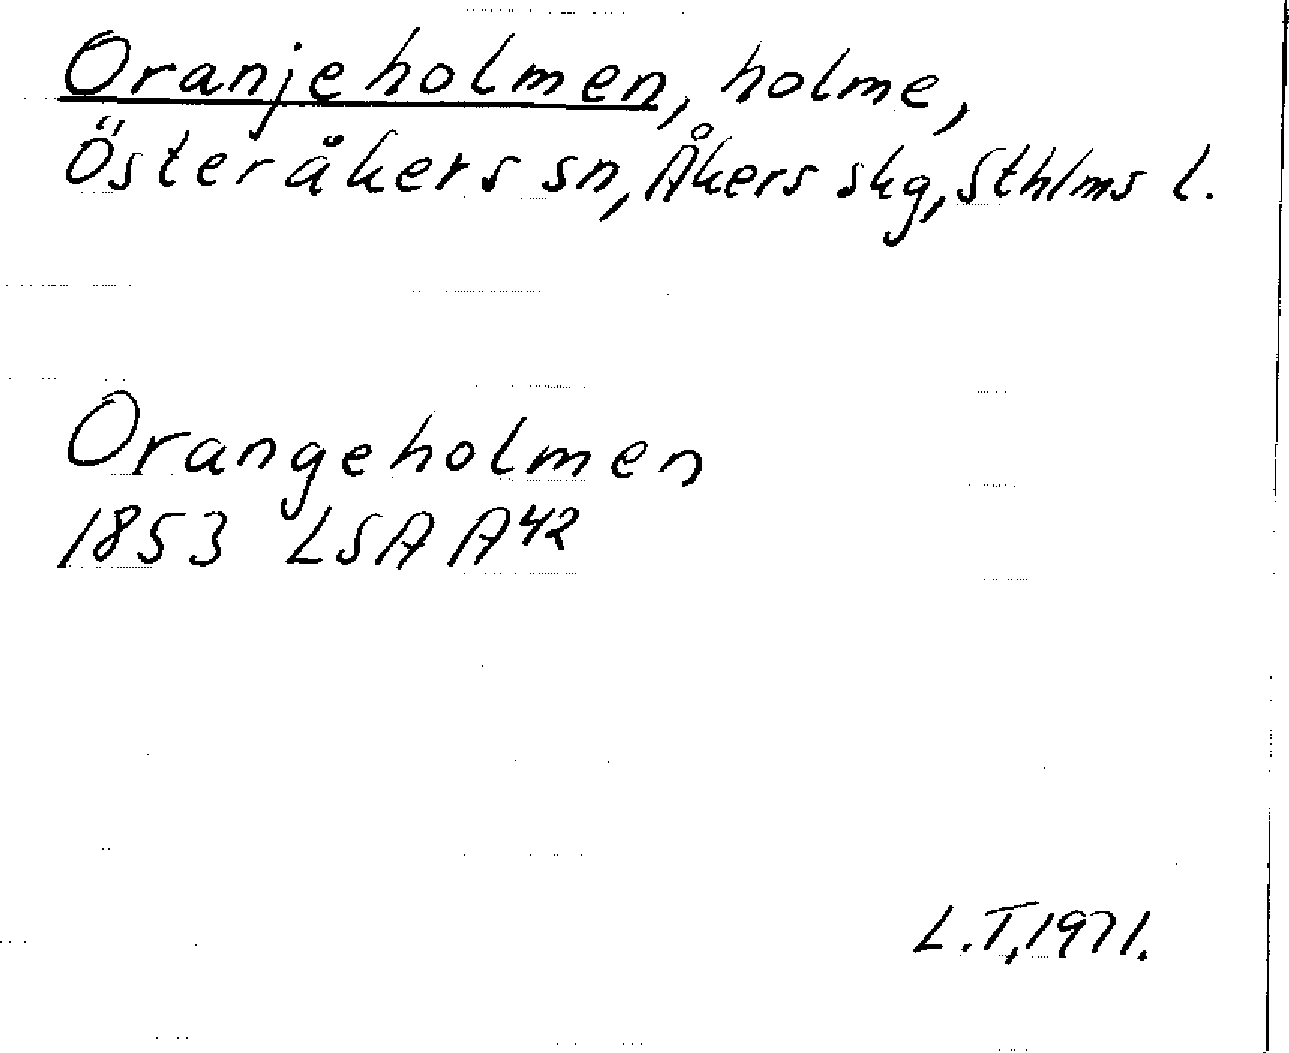 Oranjeholmen, holme,
Österåkers sn, Åkers skg, Sthlms l.
Orangeholmen
1853 LSA A42
L.T. 1971.